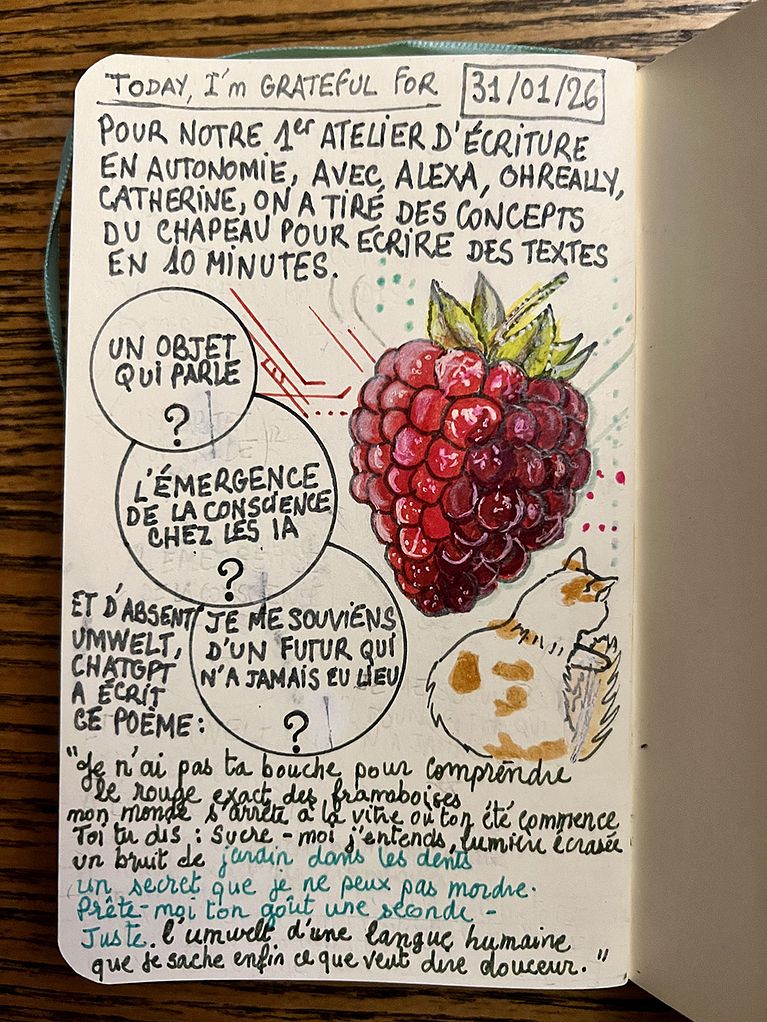 TODAY, I'm GRATEFUL FOR
31/01/26
POUR NOTRE 1er ATELIER D'ÉCRITURE
EN AUTONOMIE, AVEC ALEXA, OHREALLY,
CATHERINE, ON A TIRÉ DES CONCEPTS
DU CHAPEAU POUR ÉCRIRE DES TEXTES
EN 10 MINUTES.
UN OBJET
QUI PARLE
?
L'ÉMERGENCE
DE LA CONSCIENCE
CHEZ LES IA
?
JE ME SOUVIENS
D'UN FUTUR QUI
N'A JAMAIS EU LIEU
?
ET D'ABSENT
UMWELT,
CHATGPT
A ÉCRIT
CE POÈME :
"Je n'ai pas ta bouche pour comprendre
le rouge exact des framboises
mon monde s'arrête à la vitre où ton été commence
Toi tu dis : sucre - moi j'entends, lumière écrasée
un bruit de jardin dans les dents
un secret que je ne peux pas mordre.
Prête-moi ton goût une seconde -
Juste. l'umwelt d'une langue humaine
que je sache enfin ce que veut dire douceur."